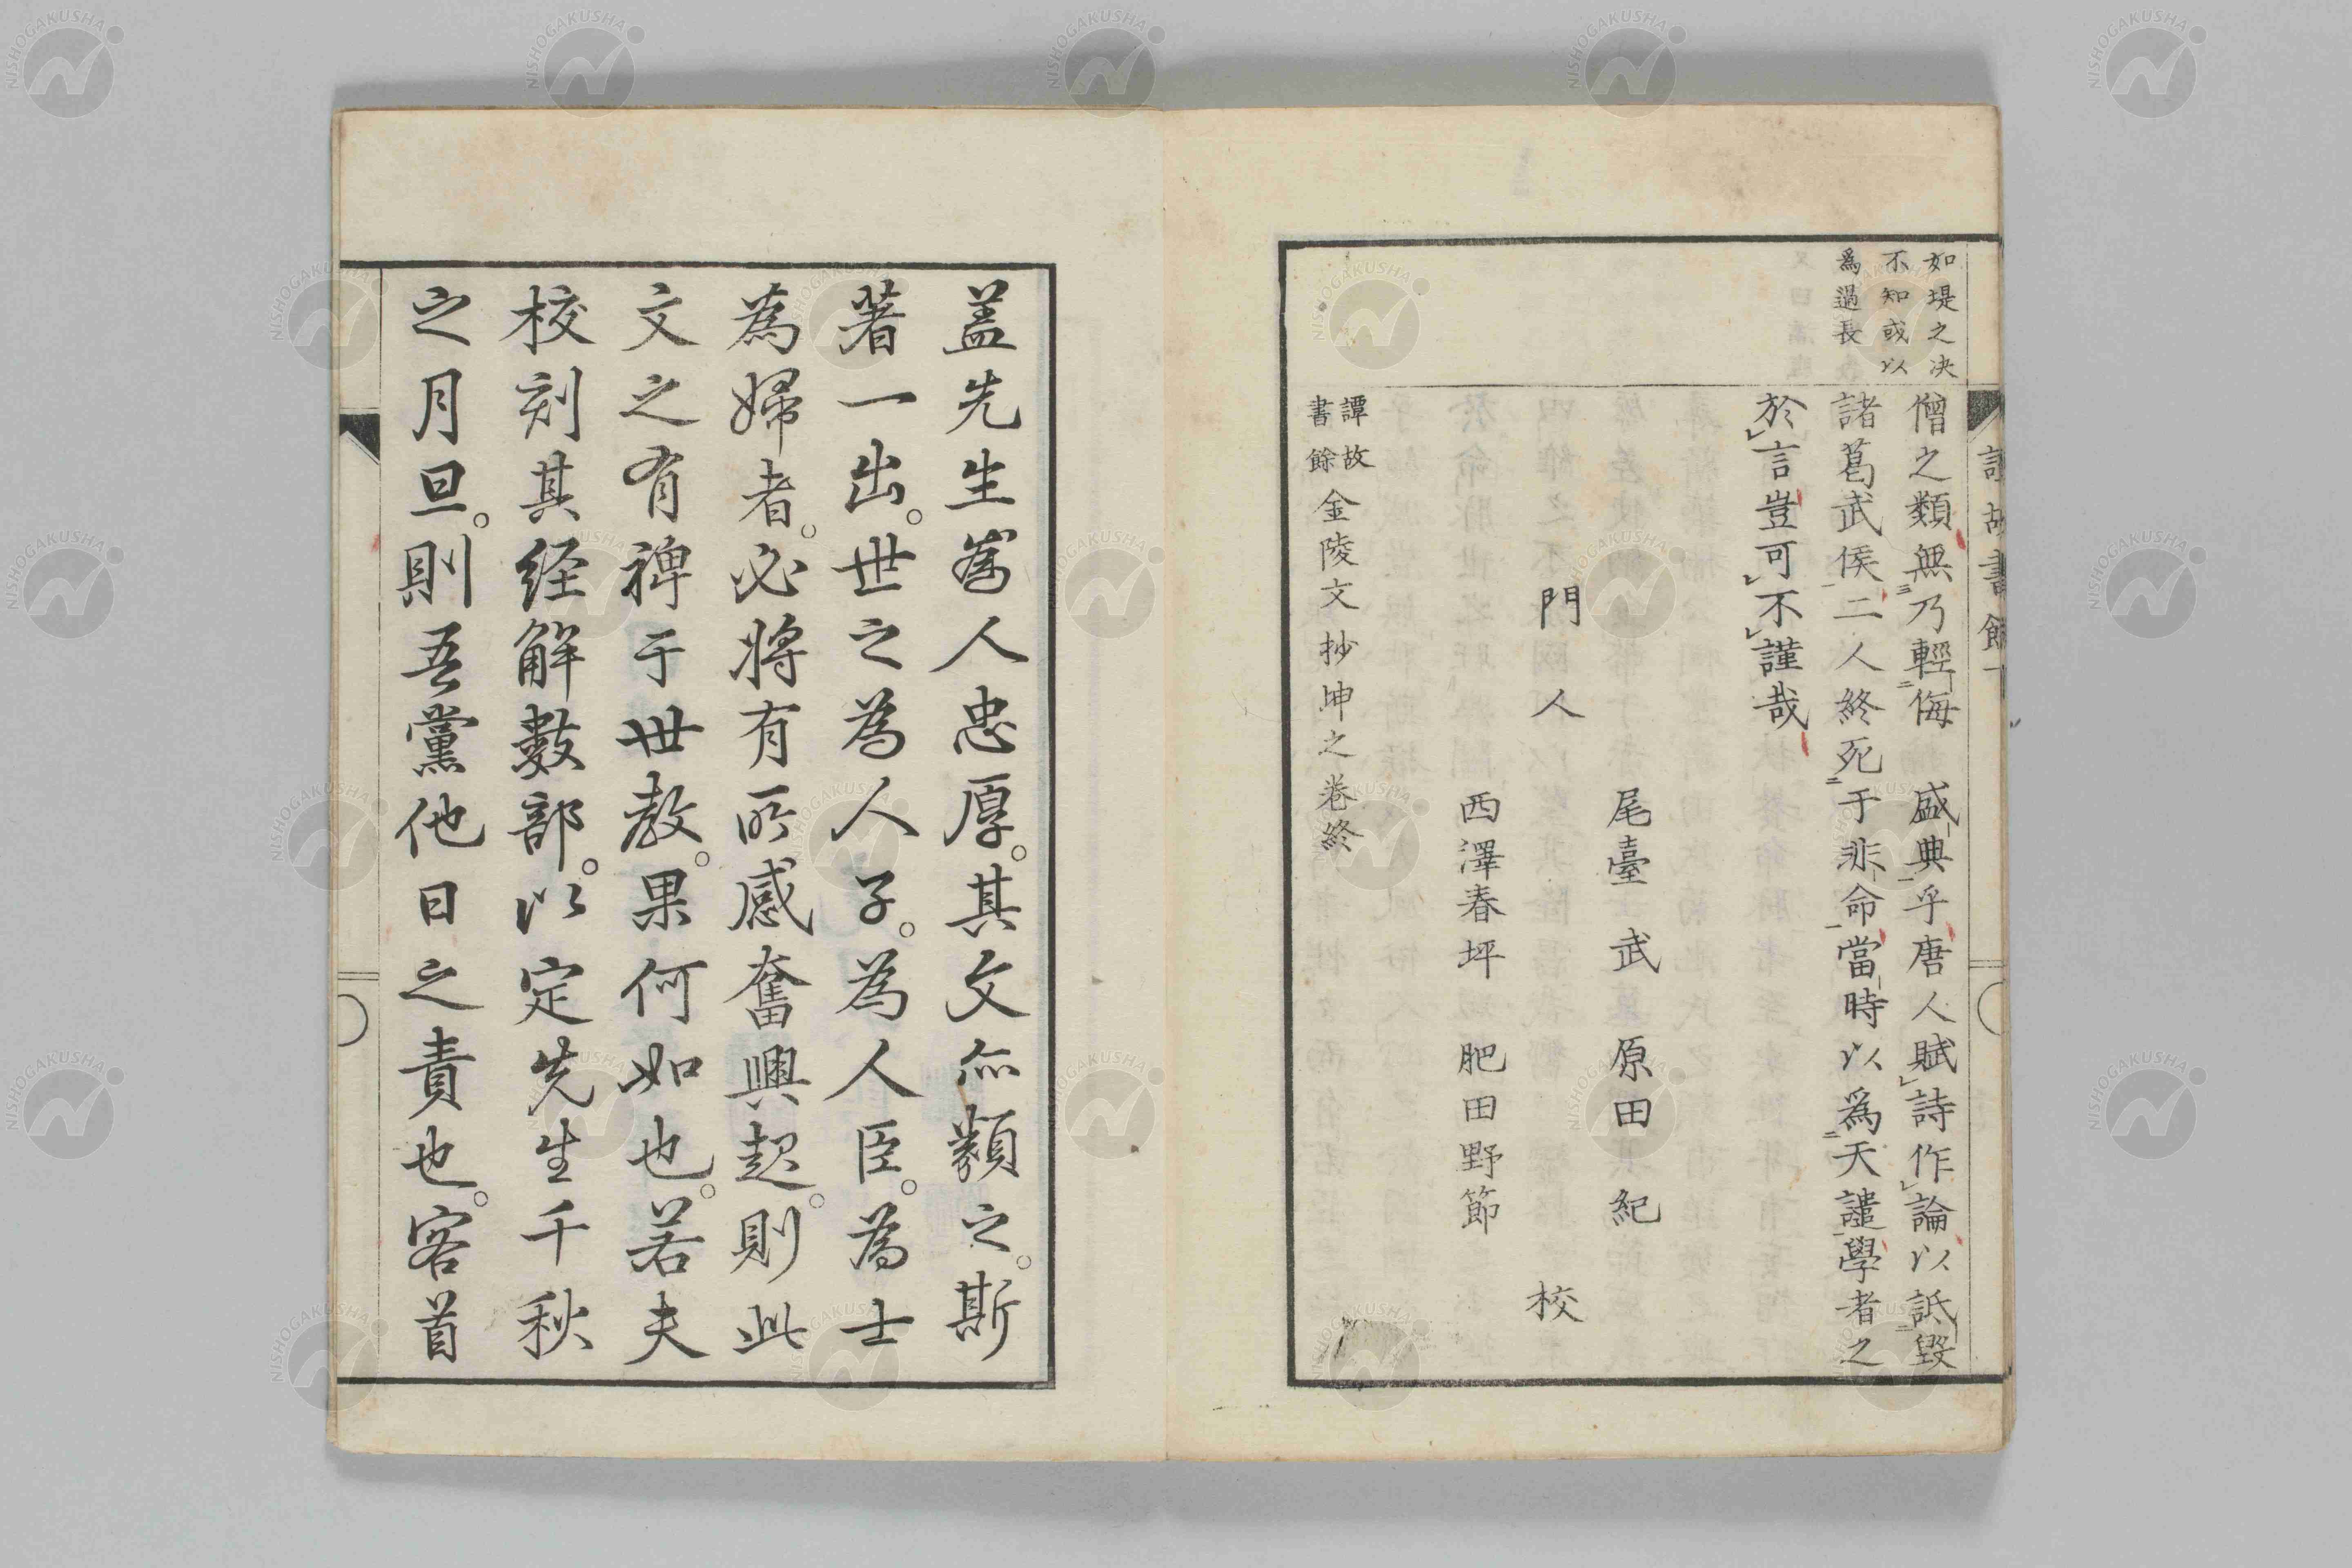 如堤之决
不知或以
為過長
僧之類無乃輕侮　盛典乎唐人賦詩作論以詆毀
諸葛武侯二人終死于非命當時以為天譴學者之
於言豈可不謹哉
尾臺武　原田紀
門人　校
西澤春坪　肥田野節
譚故書餘金陵文抄坤之卷終
譚故書餘
蓋先生為人忠厚。其文亦類之。斯
著一出。世之為人子。為人臣。為士
為婦者。必將有所感奮興起。則此
文之有裨于世教。果何如也。若夫
校刻其経解數部。以定先生千秋
之月旦。則吾黨他日之責也。客首
NISHOGAKUSHA